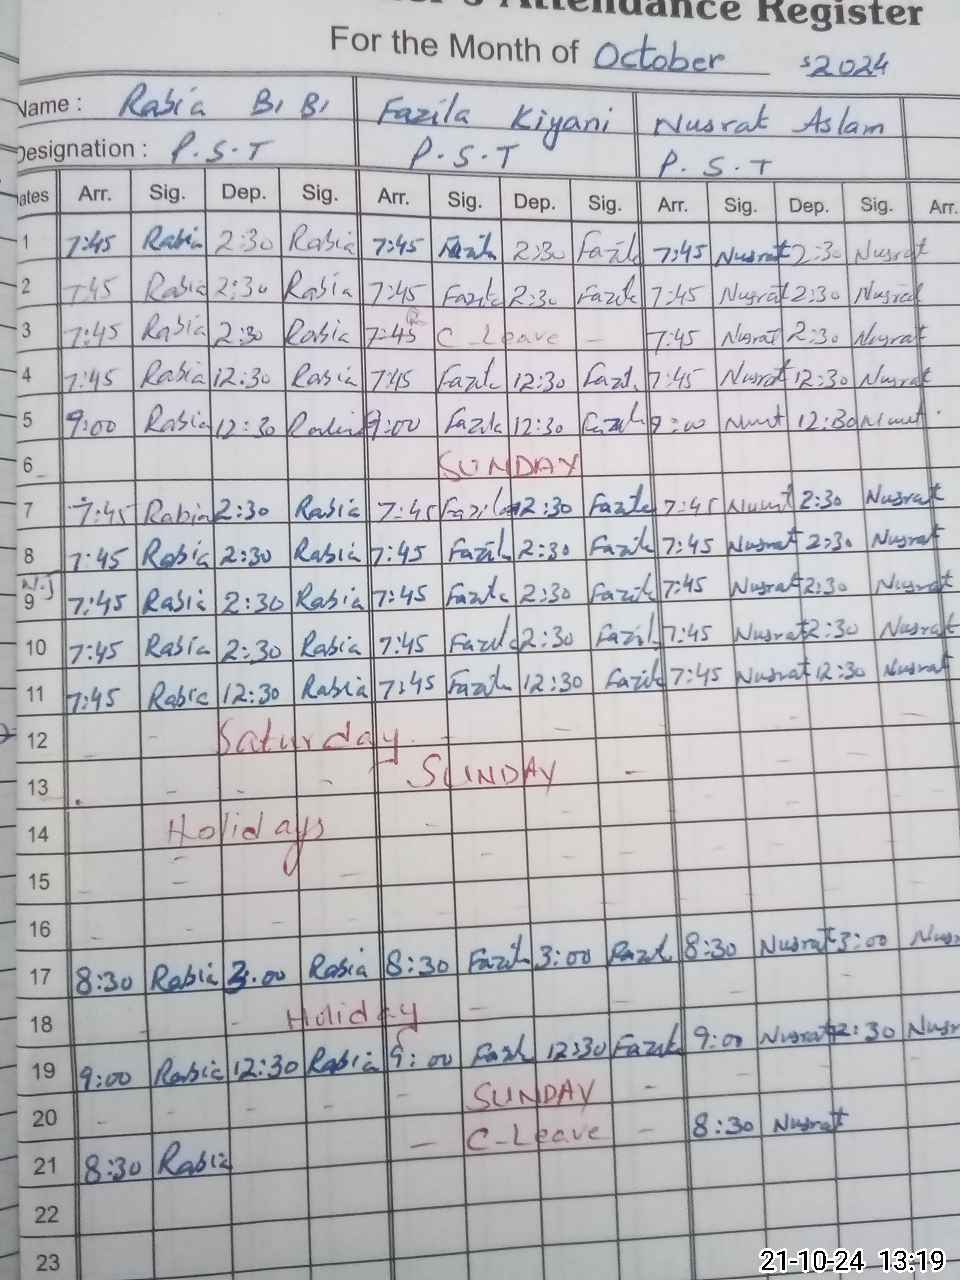 's Attendance Register
For the Month of October 2024
Name : Rabia Bi Bi Fazila Kiyani Nusrat Aslam
Designation : P.S.T P.S.T P.S.T
ates Arr. Sig. Dep. Sig. Arr. Sig. Dep. Sig. Arr. Sig. Dep. Sig. Arr.
1 7:45 Rabia 2:30 Rabia 7:45 Fazila 2:30 Fazila 7:45 Nusrat 2:30 Nusrat
2 7:45 Rabia 2:30 Rabia 7:45 Fazila 2:30 Fazila 7:45 Nusrat 2:30 Nusrat
3 7:45 Rabia 2:30 Rabia 7:45 C Leave – 7:45 Nusrat 2:30 Nusrat
4 7:45 Rabia 12:30 Rabia 7:45 Fazila 12:30 Fazila 7:45 Nusrat 12:30 Nusrat
5 9:00 Rabia 12:30 Rabia 9:00 Fazila 12:30 Fazila 9:00 Nusrat 12:30 Nusrat
6 SUNDAY
7 7:45 Rabia 2:30 Rabia 7:45 Fazila 2:30 Fazila 7:45 Nusrat 2:30 Nusrat
8 7:45 Rabia 2:30 Rabia 7:45 Fazila 2:30 Fazila 7:45 Nusrat 2:30 Nusrat
9 7:45 Rabia 2:30 Rabia 7:45 Fazila 2:30 Fazila 7:45 Nusrat 2:30 Nusrat
10 7:45 Rabia 2:30 Rabia 7:45 Fazila 2:30 Fazila 7:45 Nusrat 2:30 Nusrat
11 7:45 Rabia 12:30 Rabia 7:45 Fazila 12:30 Fazila 7:45 Nusrat 12:30 Nusrat
12 Saturday
13 SUNDAY
14 Holidays
15
16
17 8:30 Rabia 3:00 Rabia 8:30 Fazila 3:00 Fazila 8:30 Nusrat 3:00 Nusr
18 Holiday
19 9:00 Rabia 12:30 Rabia 9:00 Fazila 12:30 Fazila 9:00 Nusrat 12:30 Nusr
20 SUNDAY
21 8:30 Rabia C-Leave 8:30 Nusrat
22
23
21-10-24 13:19